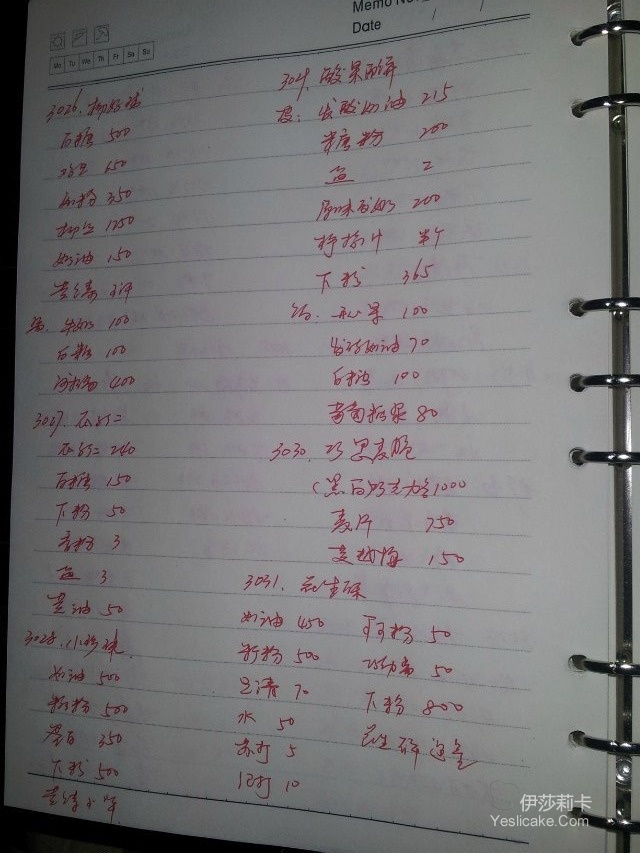 Memo No.
Date / /
Mo Tu We Th Fr Sa Su
3026.
白糖 500
650
奶粉 350
1250
奶油 150
牛奶 100
白糖 100
400
3027.
240
白糖 150
下粉 50
香粉 3
3
黄油 50
3028. 小珍珠
奶油 500
糖粉 500
蛋白 350
下粉 500
3029. 酸果酥饼
皮: 发酵奶油 215
半糖粉 200
2
原味酸奶 200
柠檬汁 半个
下粉 365
馅. 开心果 100
发酵奶油 70
白糖 100
葡萄糖浆 80
3030. 巧思麦脆
(黑白巧克力各1000
麦片 750
蔓越莓 150
3031. 花生酥
奶油 450
糖粉 500
旦清 70
水 50
苏打 5
10
可可粉 50
50
下粉 800
花生碎 适量
伊莎莉卡
Yeslicake.Com